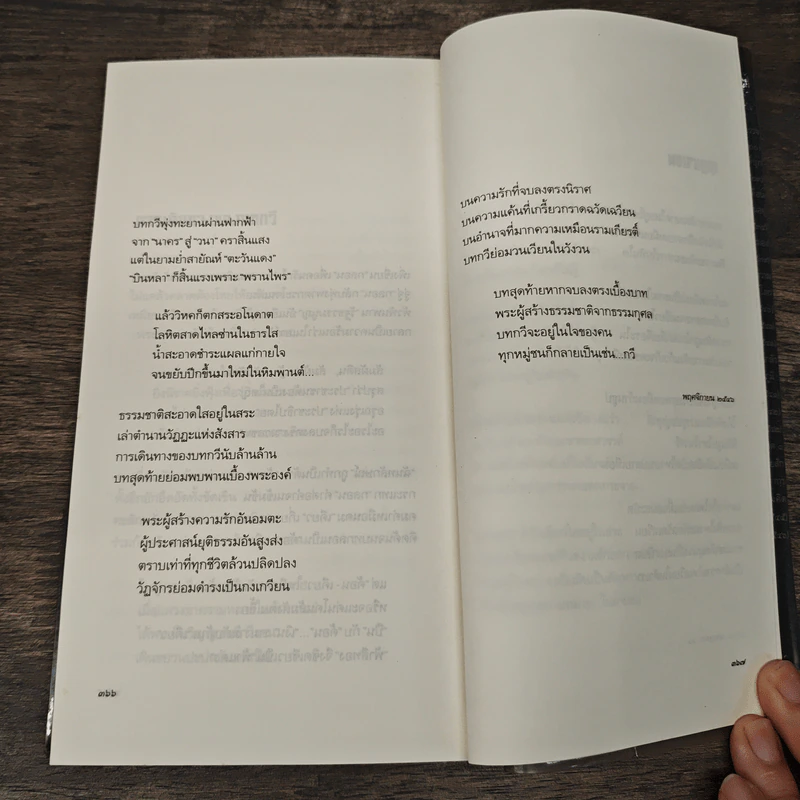 บทกวีพุ่งทะยานผ่านฟากฟ้า
จาก “นาคร” สู่ “วนา” คราสิ้นแสง
แต่ในยามย่ำสายัณห์ “ตะวันแดง”
“บินหลา” ก็สิ้นแรงเพราะ “พรานไพร”
แล้ววิหคก็ตกสระอโนดาต
โลหิตสาดไหลซ่านในธารใส
น้ำสะอาดชำระแผลแก่กายใจ
จนขยับปีกขึ้นมาใหม่ในหิมพานต์...
ธรรมชาติสะอาดใสอยู่ในสระ
เล่าตำนานวัฏฏะแห่งสังสาร
การเดินทางของบทกวีนับล้านล้าน
บทสุดท้ายย่อมพบพานเบื้องพระองค์
พระผู้สร้างความรักอันอมตะ
ผู้ประศาสน์ยุติธรรมอันสูงส่ง
ตราบเท่าที่ทุกชีวิตล้วนปลิดปลง
วัฏจักรย่อมดำรงเป็นกงเกวียน
๓๖๖
บนความรักที่จบลงตรงนิราศ
บนความแค้นที่เกรี้ยวกราดฉวัดเฉวียน
บนอำนาจที่มากความเหมือนรามเกียรติ์
บทกวีย่อมวนเวียนในวังวน
บทสุดท้ายหากจบลงตรงเบื้องบาท
พระผู้สร้างธรรมชาติจากธรรมกุศล
บทกวีจะอยู่ในใจของคน
ทุกหมู่ชนก็กลายเป็นเช่น...กวี
พฤศจิกายน ๒๕๔๖
๓๖๗